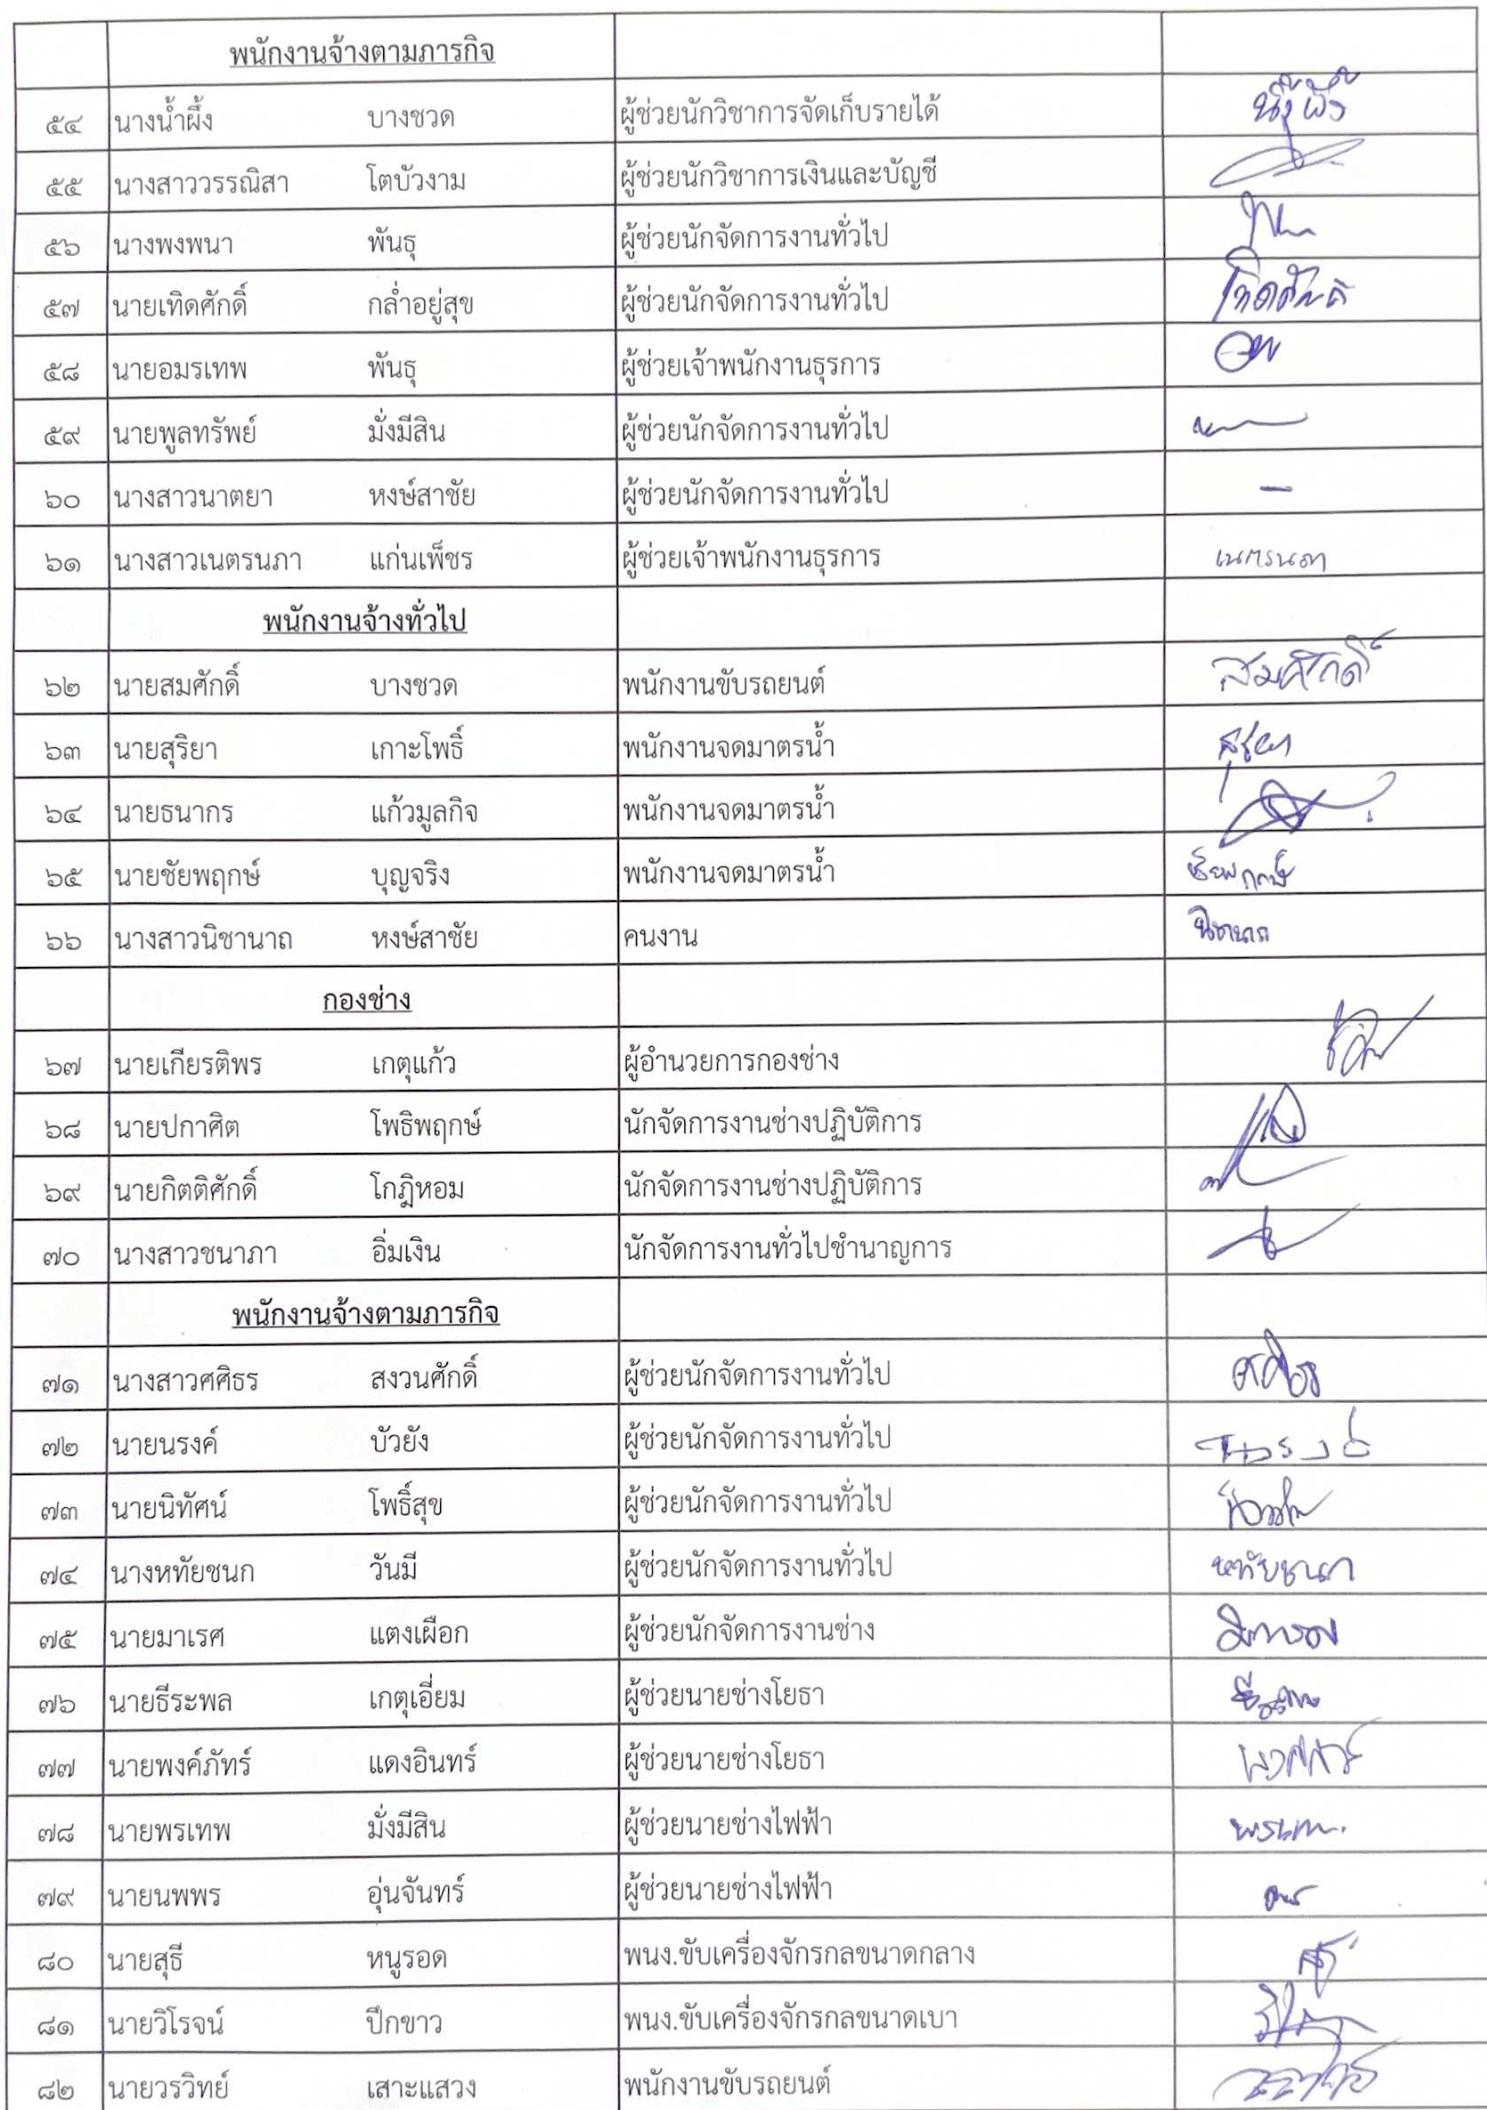 พนักงานจ้างตามภารกิจ
๕๔ นางน้ำผึ้ง บางชวด ผู้ช่วยนักวิชาการจัดเก็บรายได้ น้ำผึ้ง
๕๕ นางสาววรรณิสา โตบัวงาม ผู้ช่วยนักวิชาการเงินและบัญชี
๕๖ นางพงพนา พันธุ ผู้ช่วยนักจัดการงานทั่วไป
๕๗ นายเทิดศักดิ์ กล่ำอยู่สุข ผู้ช่วยนักจัดการงานทั่วไป เทิดศักดิ์
๕๘ นายอมรเทพ พันธุ ผู้ช่วยเจ้าพนักงานธุรการ
๕๙ นายพูลทรัพย์ มั่งมีสิน ผู้ช่วยนักจัดการงานทั่วไป
๖๐ นางสาวนาตยา หงษ์สาชัย ผู้ช่วยนักจัดการงานทั่วไป -
๖๑ นางสาวเนตรนภา แก่นเพ็ชร ผู้ช่วยเจ้าพนักงานธุรการ เนตรนภา
พนักงานจ้างทั่วไป
๖๒ นายสมศักดิ์ บางชวด พนักงานขับรถยนต์ สมศักดิ์
๖๓ นายสุริยา เกาะโพธิ์ พนักงานจดมาตรน้ำ สุริยา
๖๔ นายธนากร แก้วมูลกิจ พนักงานจดมาตรน้ำ
๖๕ นายชัยพฤกษ์ บุญจริง พนักงานจดมาตรน้ำ ชัยพฤกษ์
๖๖ นางสาวนิชานาถ หงษ์สาชัย คนงาน นิชานาถ
กองช่าง
๖๗ นายเกียรติพร เกตุแก้ว ผู้อำนวยการกองช่าง
๖๘ นายปกาศิต โพธิพฤกษ์ นักจัดการงานช่างปฏิบัติการ
๖๙ นายกิตติศักดิ์ โกฎิหอม นักจัดการงานช่างปฏิบัติการ
๗๐ นางสาวชนาภา อิ่มเงิน นักจัดการงานทั่วไปชำนาญการ
พนักงานจ้างตามภารกิจ
๗๑ นางสาวศศิธร สงวนศักดิ์ ผู้ช่วยนักจัดการงานทั่วไป ศศิธร
๗๒ นายนรงค์ บัวยัง ผู้ช่วยนักจัดการงานทั่วไป นรงค์
๗๓ นายนิทัศน์ โพธิ์สุข ผู้ช่วยนักจัดการงานทั่วไป
๗๔ นางหทัยชนก วันมี ผู้ช่วยนักจัดการงานทั่วไป หทัยชนก
๗๕ นายมาเรศ แตงเผือก ผู้ช่วยนักจัดการงานช่าง
๗๖ นายธีระพล เกตุเอี่ยม ผู้ช่วยนายช่างโยธา ธีระพล
๗๗ นายพงค์ภัทร์ แดงอินทร์ ผู้ช่วยนายช่างโยธา
๗๘ นายพรเทพ มั่งมีสิน ผู้ช่วยนายช่างไฟฟ้า พรเทพ
๗๙ นายนพพร อุ่นจันทร์ ผู้ช่วยนายช่างไฟฟ้า
๘๐ นายสุธี หนูรอด พนง.ขับเครื่องจักรกลขนาดกลาง
๘๑ นายวิโรจน์ ปึกขาว พนง.ขับเครื่องจักรกลขนาดเบา
๘๒ นายวรวิทย์ เสาะแสวง พนักงานขับรถยนต์